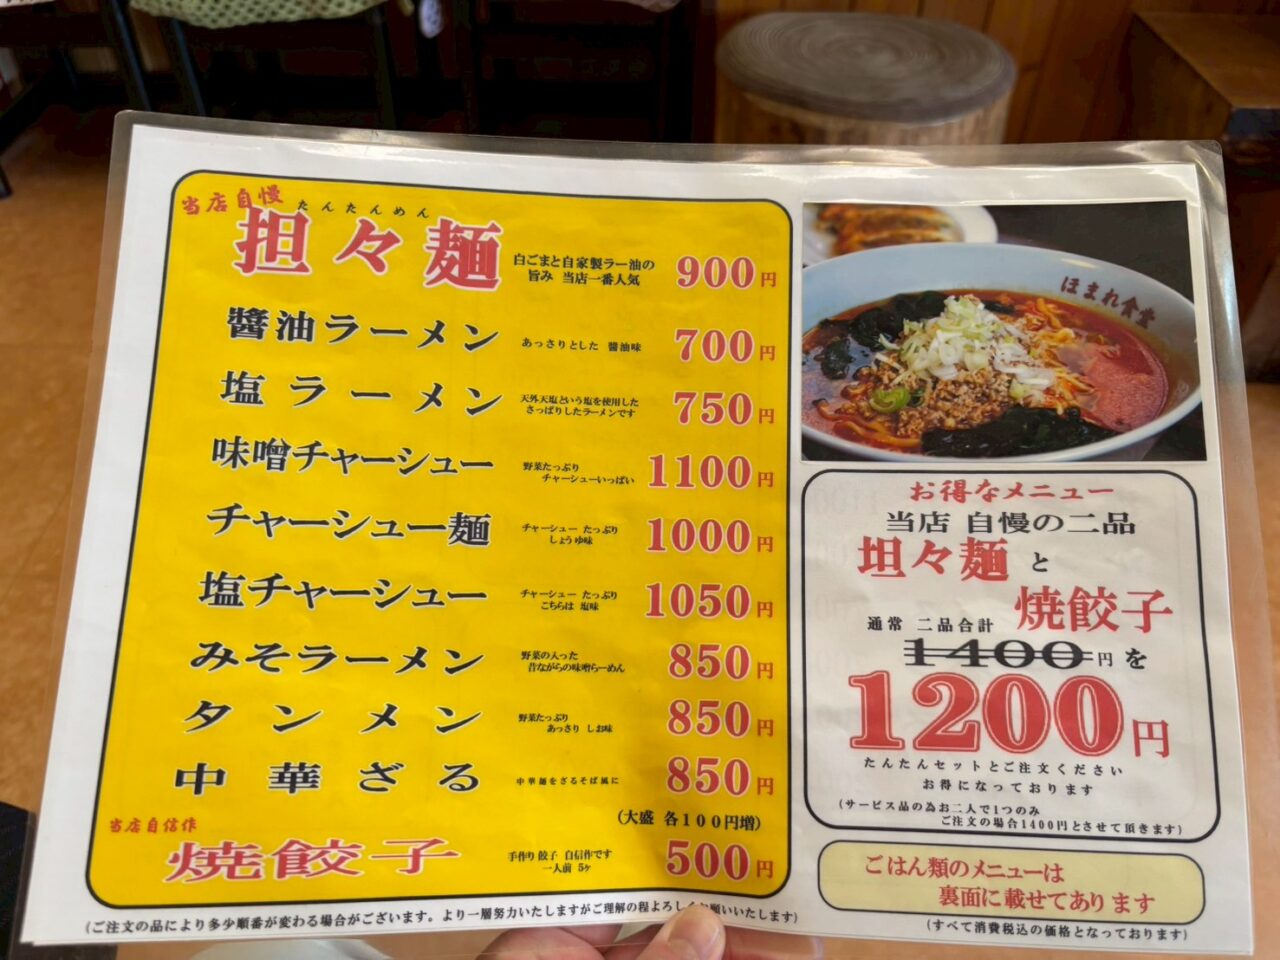 当店自慢
たんたんめん
担々麺 白ごまと自家製ラー油の 旨み 当店一番人気 900円
醬油ラーメン あっさりとした 醬油味 700円
塩ラーメン 天外天塩という塩を使用した さっぱりしたラーメンです 750円
味噌チャーシュー 野菜たっぷり チャーシューいっぱい 1100円
チャーシュー麺 チャーシュー たっぷり しょうゆ味 1000円
塩チャーシュー チャーシュー たっぷり こちらは 塩味 1050円
みそラーメン 野菜の入った 昔ながらの味噌らーめん 850円
タンメン 野菜たっぷり あっさり しお味 850円
中華ざる 中華麺をざるそば風に 850円
(大盛 各100円増)
当店自信作
焼餃子 手作り餃子 自信作です 一人前 5ヶ 500円
(ご注文の品により多少順番が変わる場合がございます。より一層努力いたしますがご理解の程よろしく願いいたします)
ほまれ食堂
お得なメニュー
当店 自慢の二品
坦々麺 と
焼餃子
通常 二品合計
1400円 を
1200円
たんたんセットとご注文ください
お得になっております
(サービス品の為お二人で1つのみ
ご注文の場合1400円とさせて頂きます)
ごはん類のメニューは
裏面に載せてあります
(すべて消費税込の価格となっております)